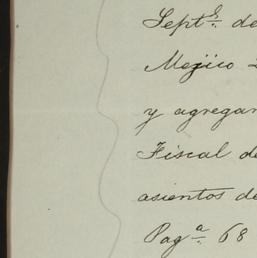 Septe de
Mejico
y agregar
Fiscal de
asientos de
Paga 68